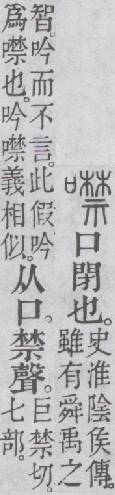 噤口閉也。史淮陰矦傳。
雖有舜禹之
智。吟而不言。此假吟
爲噤也。吟噤義相似。
从口。禁聲。巨禁切。
七部。